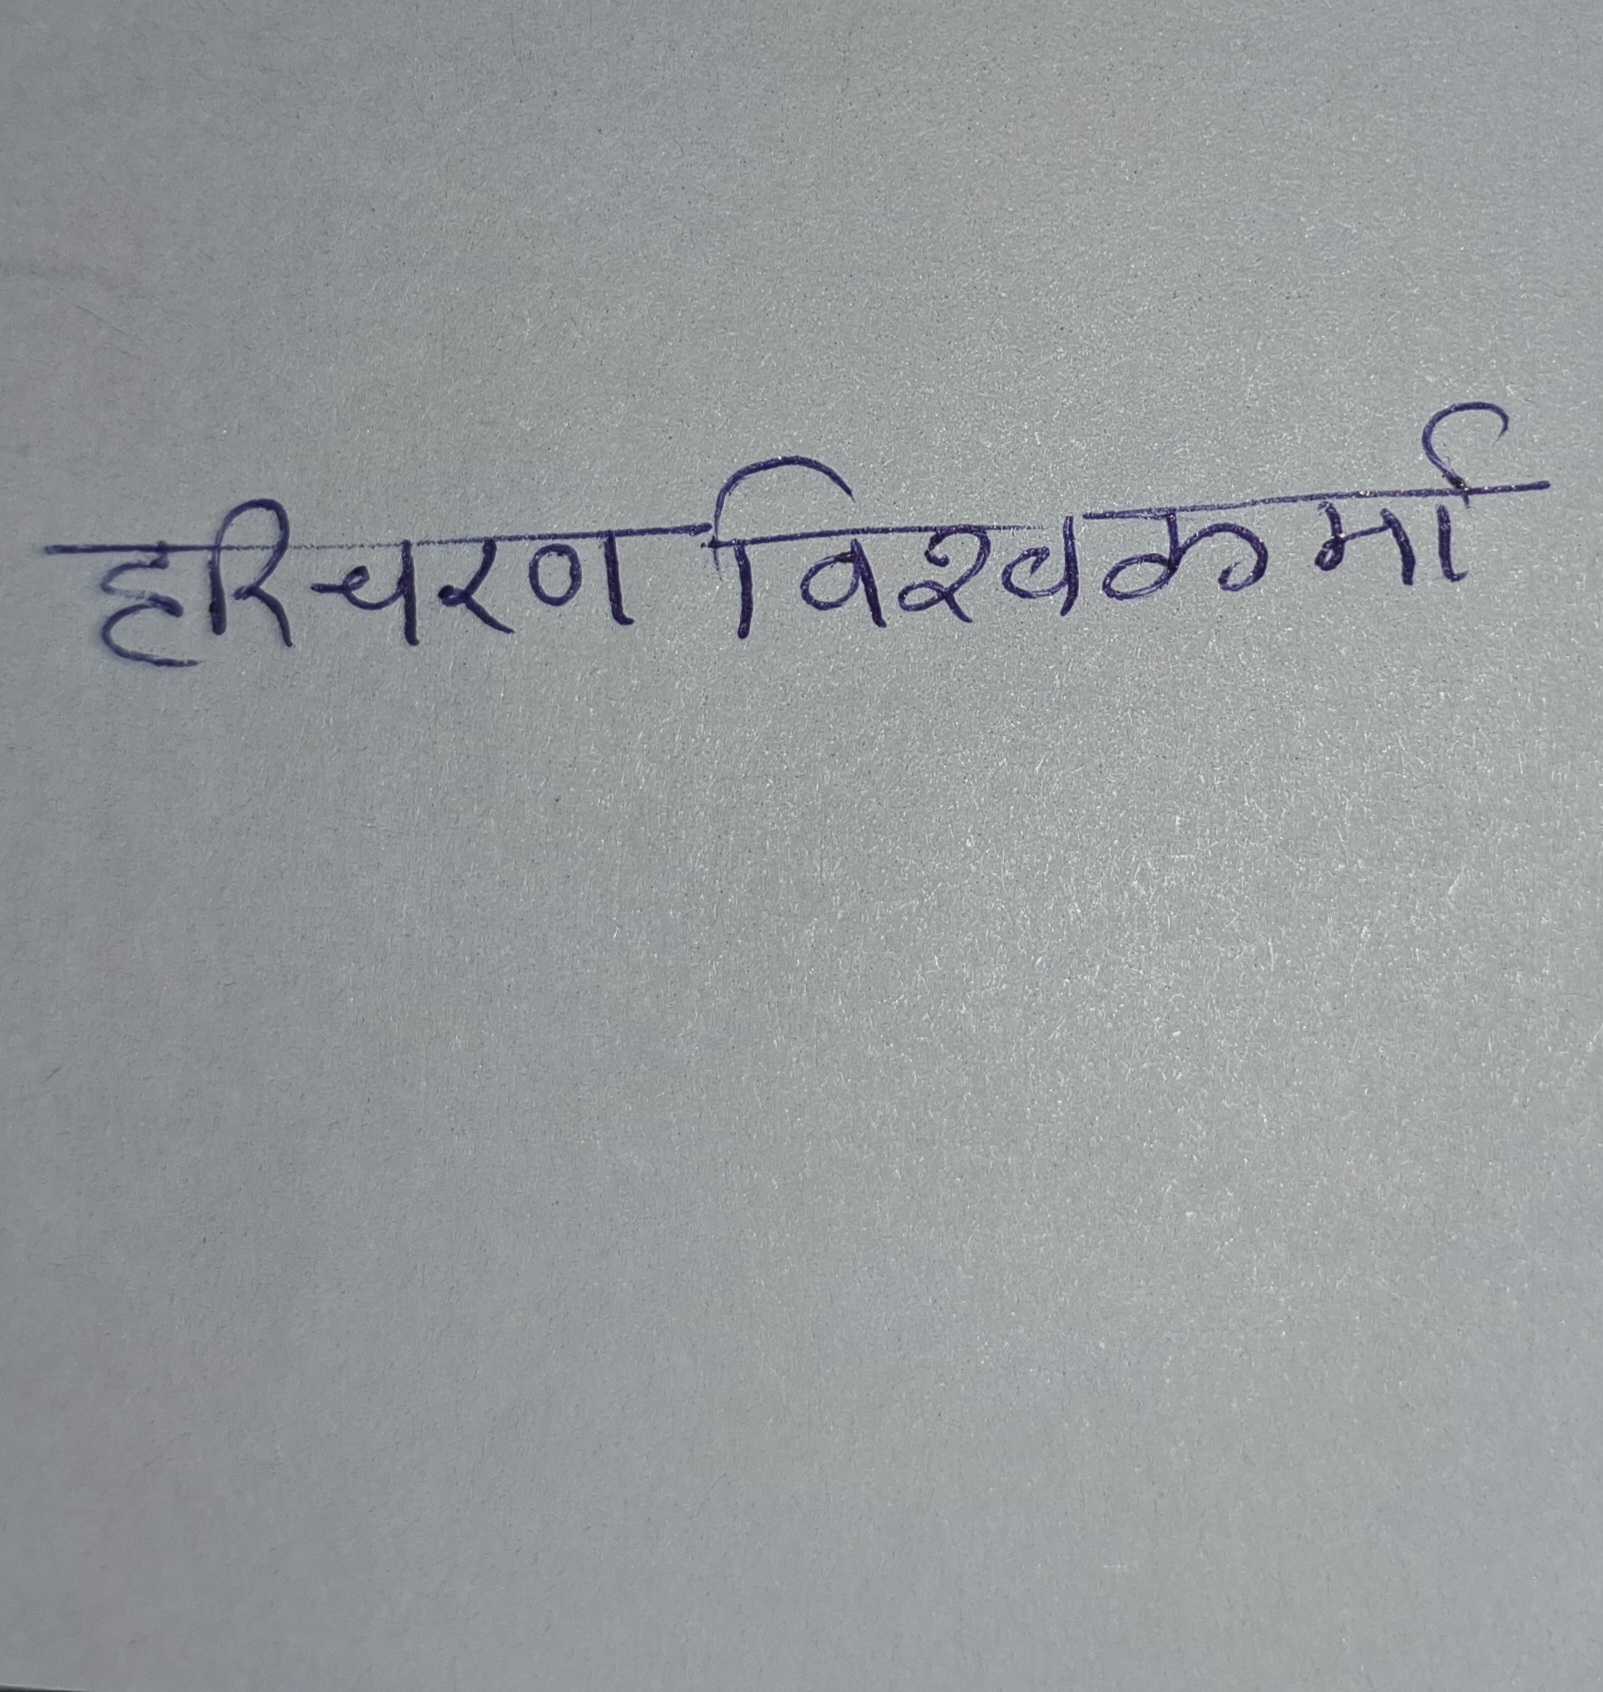 हरिचरण विश्वकर्मा